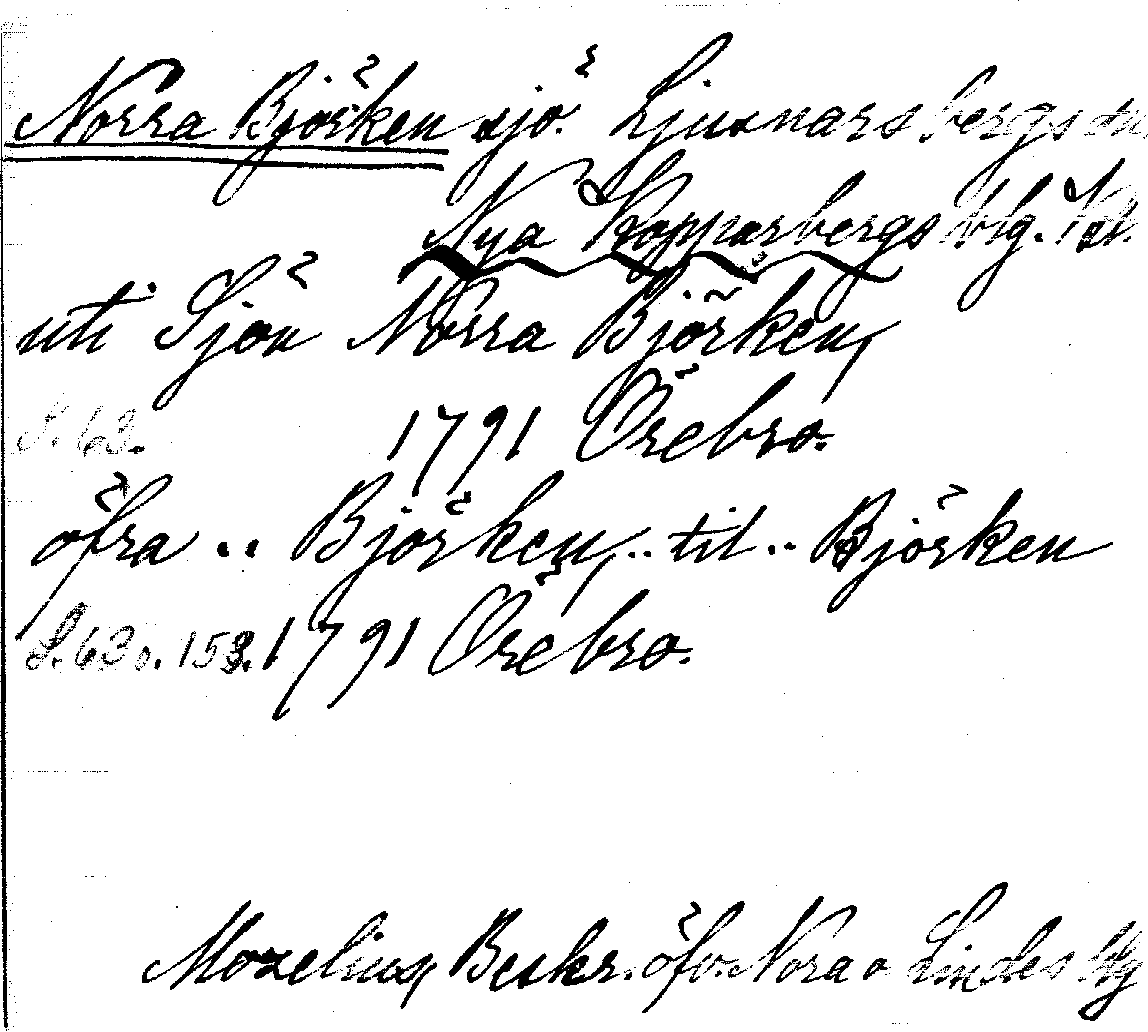 Norra Björken sjö. Ljusnarsbergs sn.
Nya Kopparbergs blg. Vbl.
uti Sjön Norra Björken,
S. 63. 1791 Örebro.
öfra .. Björken, .. til .. Björken
S. 63 o. 153. 1791 Örebro.
Mozelius, Beskr. öfv. Nora o Lindes blg